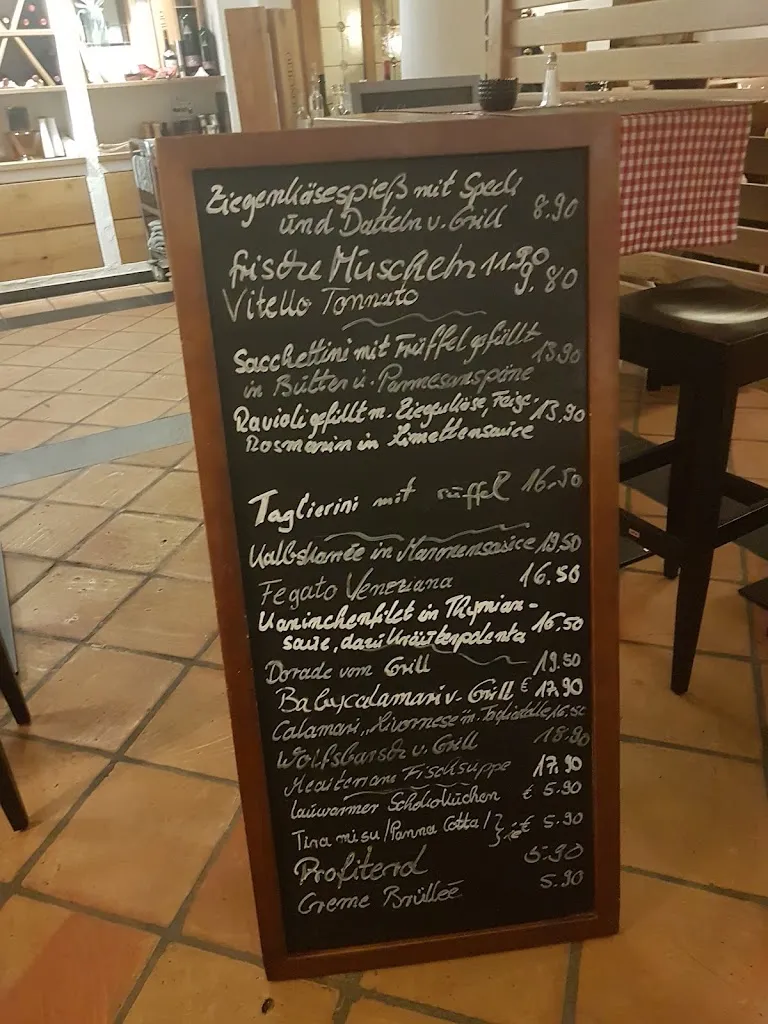 Ziegenkäsespieß mit Speck
und Datteln v. Grill 8.90
frische Muscheln 11.90
Vitello Tonnato 9.80
Sacchettini mit Trüffel gefüllt
in Butter u. Parmesanspäne 13.90
Ravioli gefüllt m. Ziegenkäse, Feige-
Rosmarin in Limettensauce 13,90
Taglierini mit rüffel 16.50
Kalbskarrée in Maronensauce 19.50
Fegato Veneziana 16.50
Kaninchenfilet in Thymian-
sauce, dazu Kräuterpolenta 16,50
Dorade vom Grill 19.50
Babycalamari v. Grill € 17.90
Calamari „Livornese m. Tagliatelle 16.50
Wolfsbarsch v. Grill 18.90
Mediterrane Fischsuppe 17.90
lauwarmer Schokokuchen € 5.90
Tiramisu/Panna Cotta/ } je € 5.90
Profiterol 5.90
Creme Brüllée 5.90